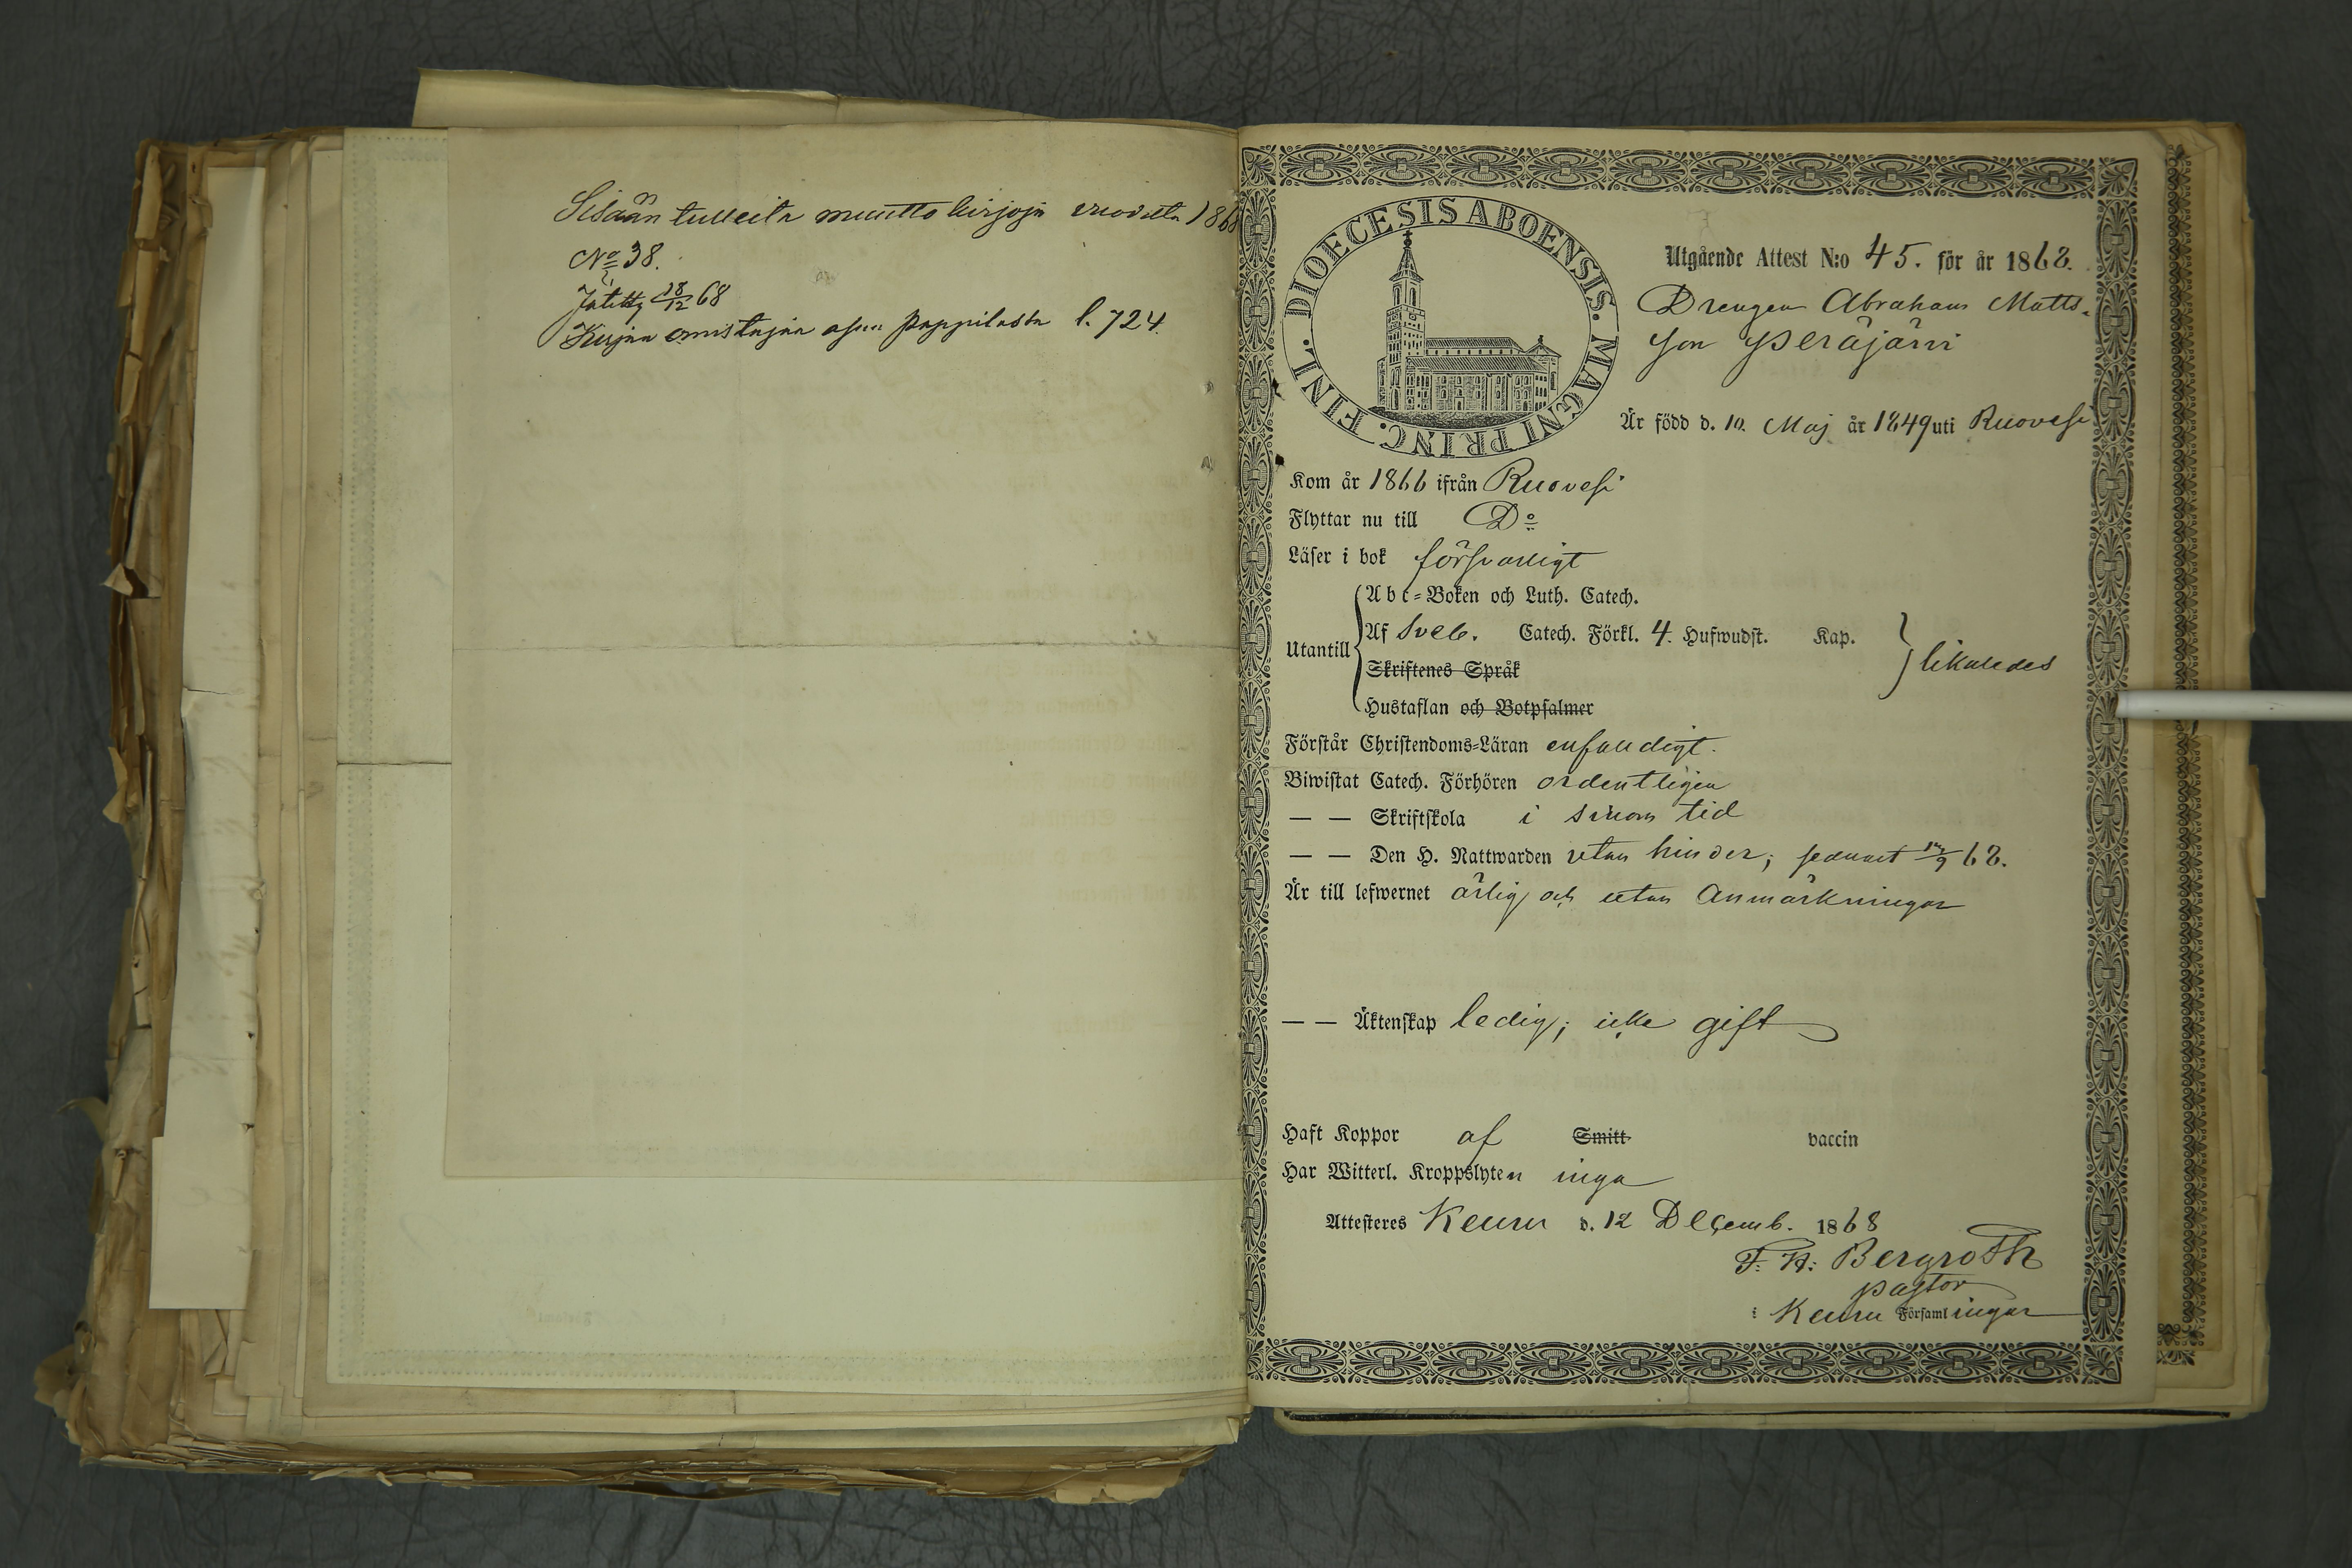 Sisään tulleita muutto kirjoja vuodelta 1868
No 38.
Jätetty 18/12 68
Kirjan omistajan asun Pappilasta l. 724.
DIOECESIS ABOENSIS. MAGNI PRINC. FINL.
Utgående Attest N:o 45. för år 1868.
Drengen Abraham Matts-
son Peräjärvi
Är född d. 10. Maj år 1849 uti Ruovesi
Kom år 1866 ifrån Ruovesi
Flyttar nu till Do
Läser i bok försvarligt
Abc-Boken och Luth. Catech.
Utantill Af Sveb. Catech. Förkl. 4. Hufwudst. Kap. likaledes
Skriftenes Språk
Hustaflan och Botpsalmer
Förstår Christendoms-Läran enfaldigt.
Biwistat Catech. Förhören ordentligen
— — Skriftskola i sinom tid
— — Den H. Nattwarden utan hinder; sednast /9 68.
Är till lefwernet ärlig och utan anmärkningar
— — Äktenskap ledig; icke gift
Haft Koppor af Smitt vaccin
Har Witterl. Kroppslyten inga
Attesteres Keuru d. 12 Decemb. 1868
F. H: Bergroth
pastor
i Keuru Församlingar